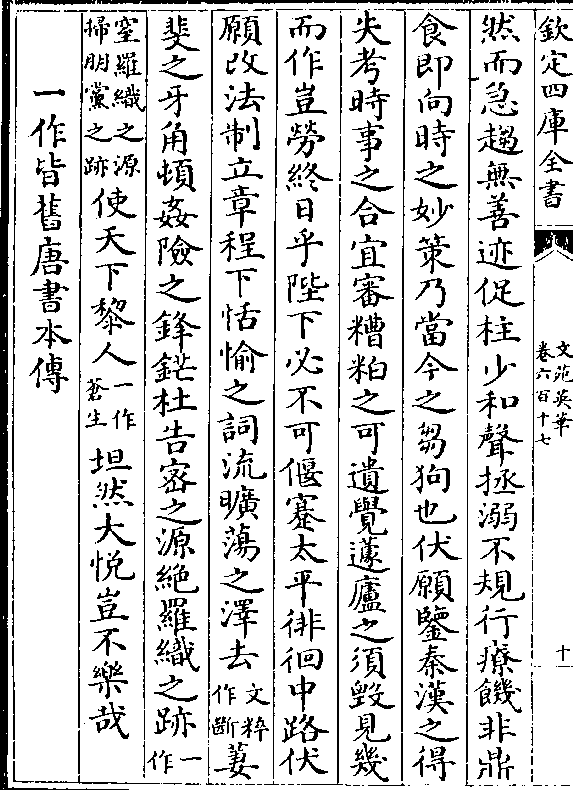 欽定四庫全書
文苑英華
卷六百十七
十
然而急趨無善迹促柱少和聲拯溺不規行療饑非鼎
食即向時之妙策乃當今之芻狗也伏願鑒秦漢之得
失考時事之合宜審糟粕之可遺覺蘧廬之須毀見幾
而作豈勞終日乎陛下必不可偃蹇太平徘徊中路伏
願改法制立章程下恬愉之詞流曠蕩之澤去文粹作斷萋
斐之牙角頓姦險之鋒鋩杜告密之源絶羅織之跡一作
窒羅織之源掃朋黨之跡使天下黎人一作蒼生坦然大悦豈不樂哉
一作皆舊唐書本傳